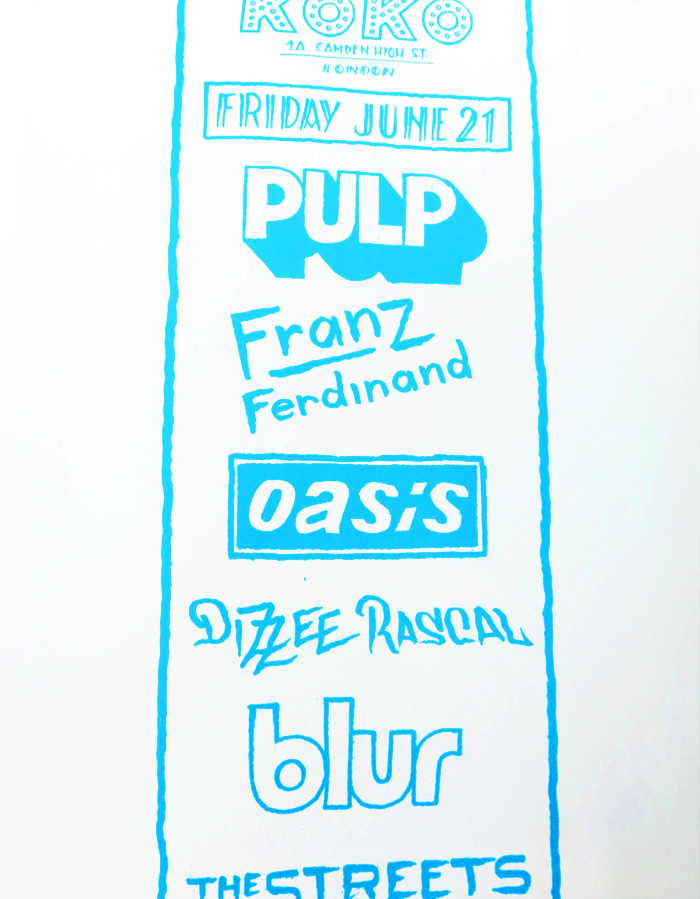 KOKO
1A CAMDEN HIGH ST.
LONDON
FRIDAY JUNE 21
PULP
Franz
Ferdinand
oasis
DIZZEE RASCAL
blur
THE STREETS